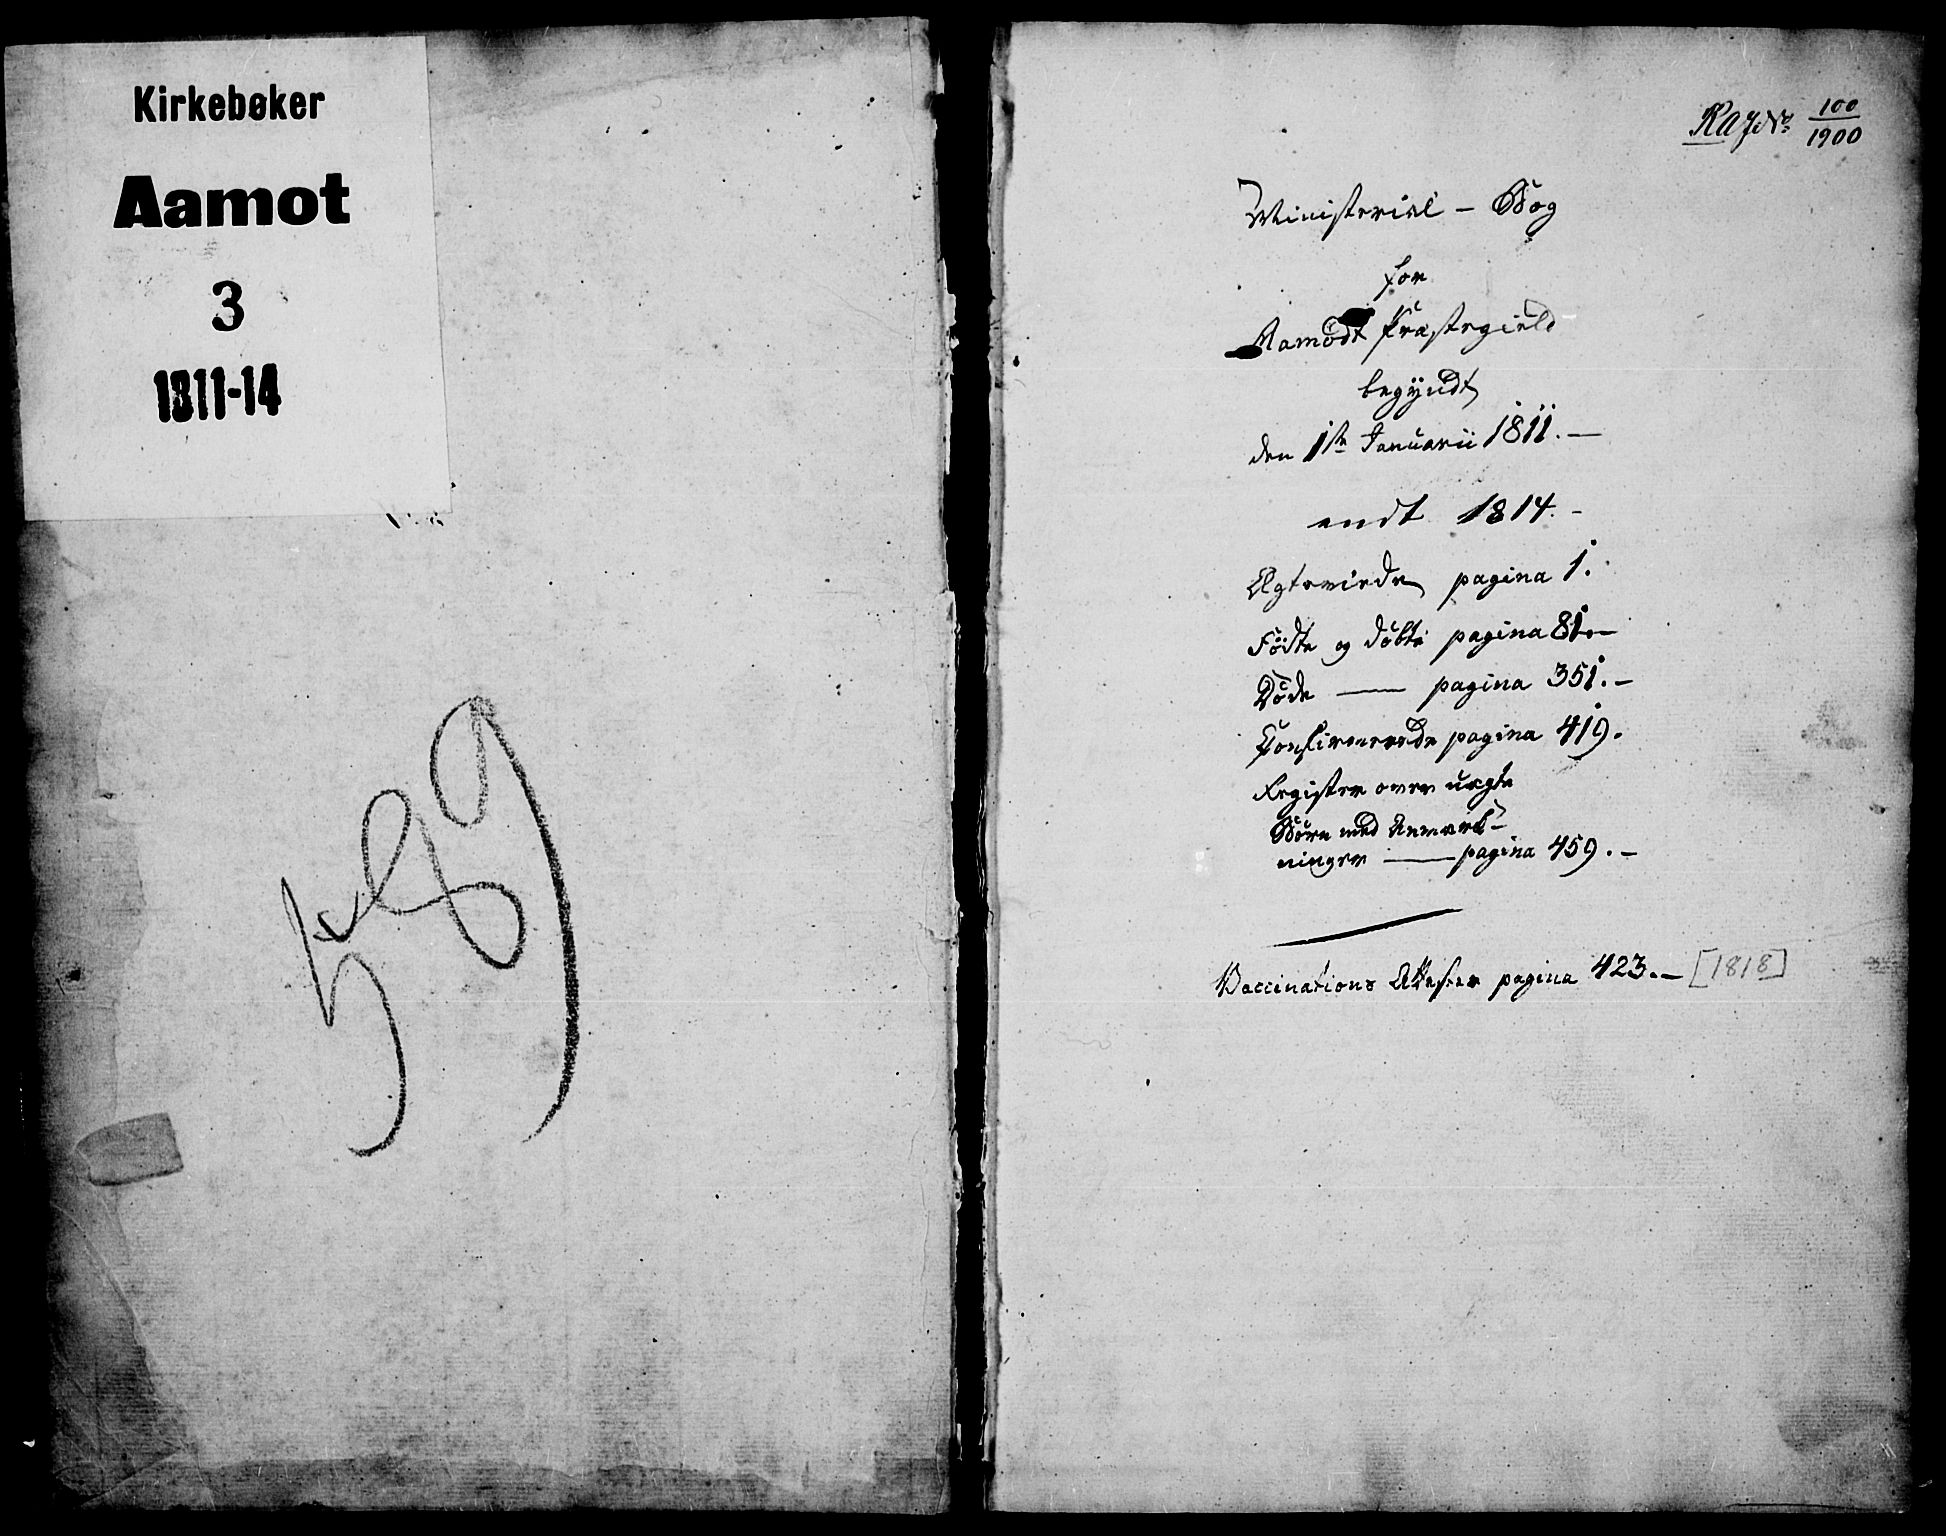 Kirkebøker
Aamot
3
1811-14
RA J.No 100/1900
Ministerial - Bog
for
Aamodt Præstegield
begyndt
den 1ste Januarii 1811. —
endt 1814. -
Ægteviede pagina 1.
Födte og döbte pagina 81. —
Döde —— pagina 351. —
Confirmerede pagina 419.
Register over uægte
Börn med Anmærk-
ninger —— pagina 459. —
Vaccinations Attester pagina 423. — [1818]